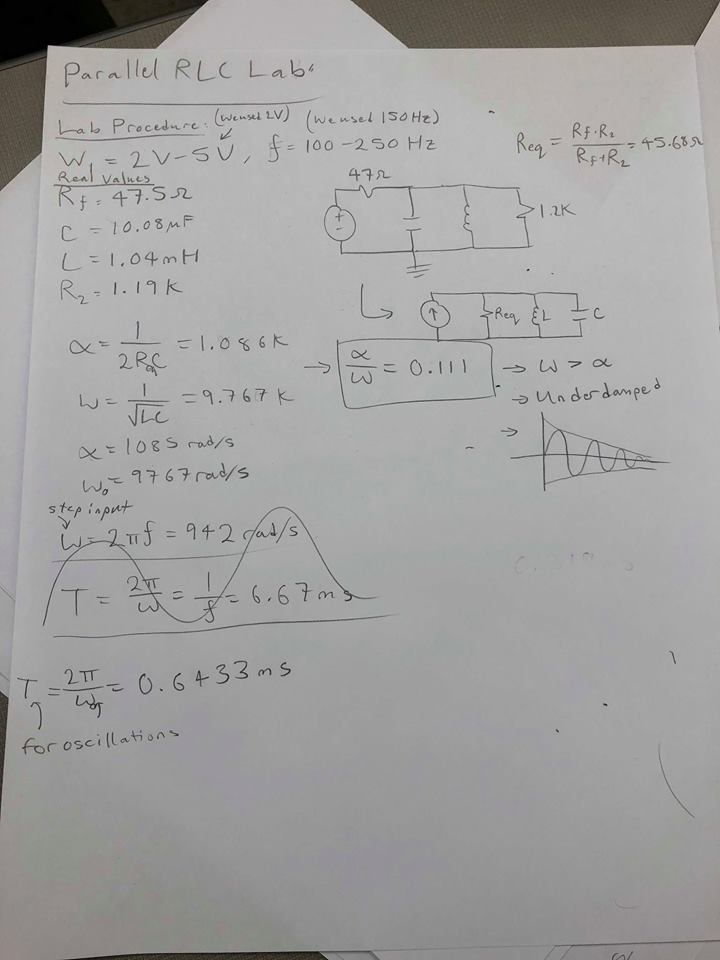 Parallel RLC Lab:
Lab Procedure: (We used 2V) (We used 150Hz)
W₁ = 2V-5V, f = 100-250 Hz
Req = Rf·R₂ / Rf+R₂ = 45.68Ω
Real Values
Rf = 47.5Ω
C = 10.08μF
L = 1.04mH
R₂ = 1.19K
47Ω
1.2K
Req L C
α = 1 / 2ReqC = 1.086K
W = 1 / √LC = 9.767K
→ α / W = 0.111 → W > α
→ Underdamped
→
α = 1085 rad/s
W₀ = 9767 rad/s
step input
W = 2πf = 942 rad/s
T = 2π / W = 1 / f = 6.67ms
T = 2π / W₀ = 0.6433ms
for oscillations